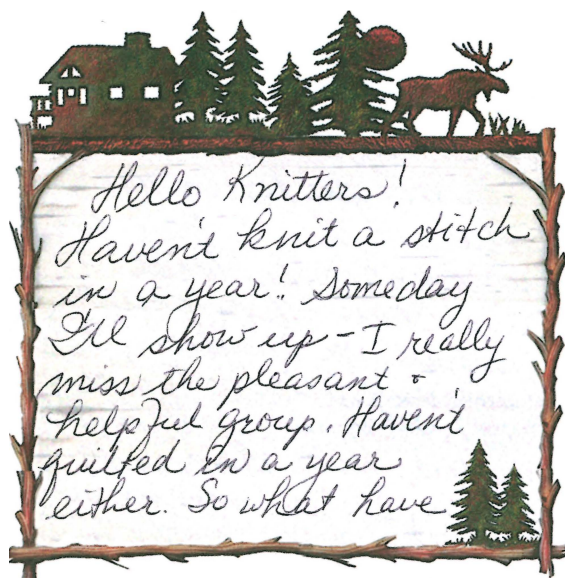 Hello Knitters!
Haven't knit a stitch
in a year! Someday
I'll show up - I really
miss the pleasant &
helpful group. Haven't
quilted in a year
either. So what have